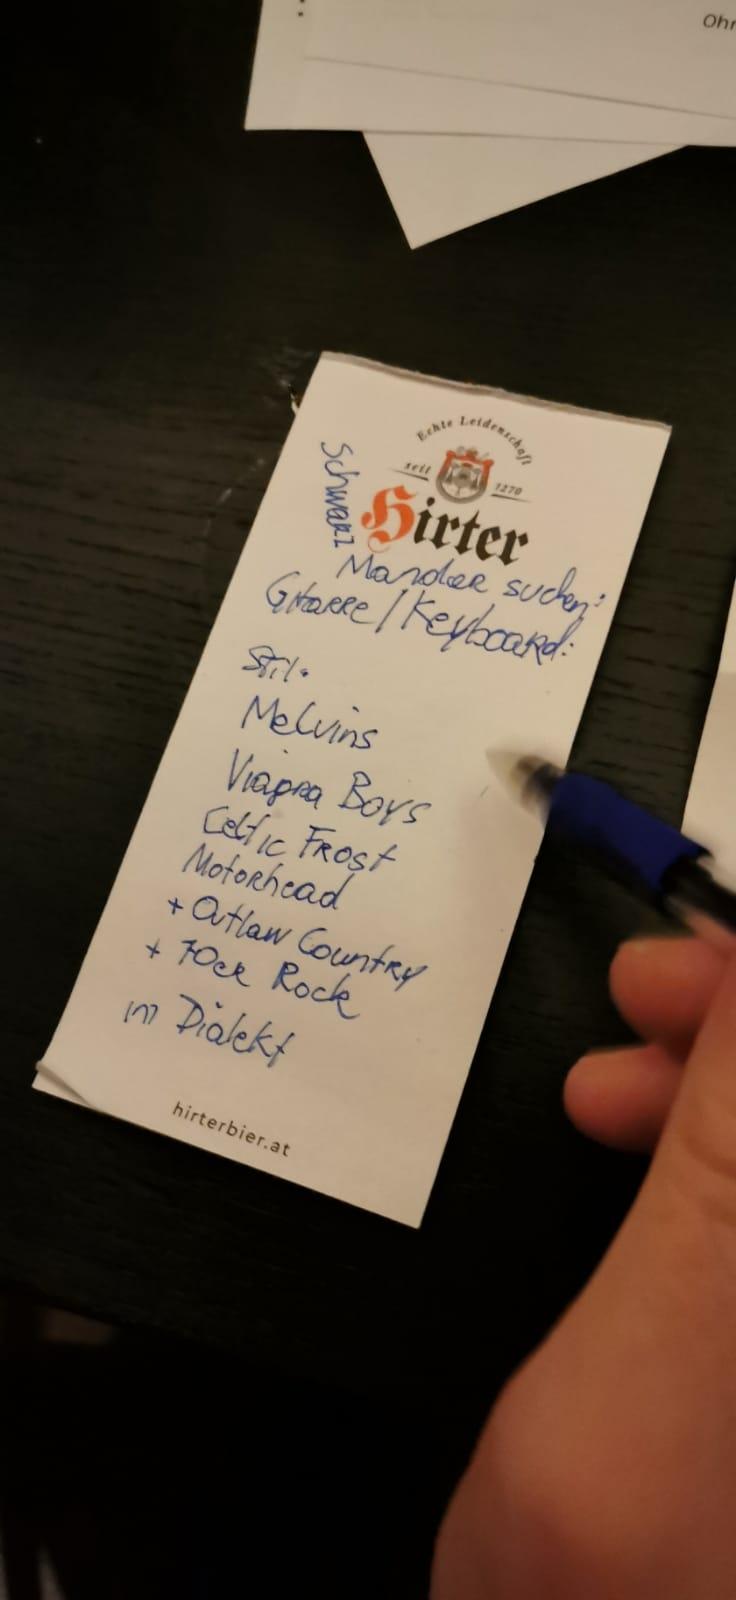 Ohr
Echte Leidenschaft
seit 1270
Hirter
Schwarz
Mander suchen:
Gitarre/Keyboard:
Stil:
Melvins
Viagra Boys
Celtic Frost
Motorhead
+ Outlaw Country
+ 70er Rock
im Dialekt
hirterbier.at